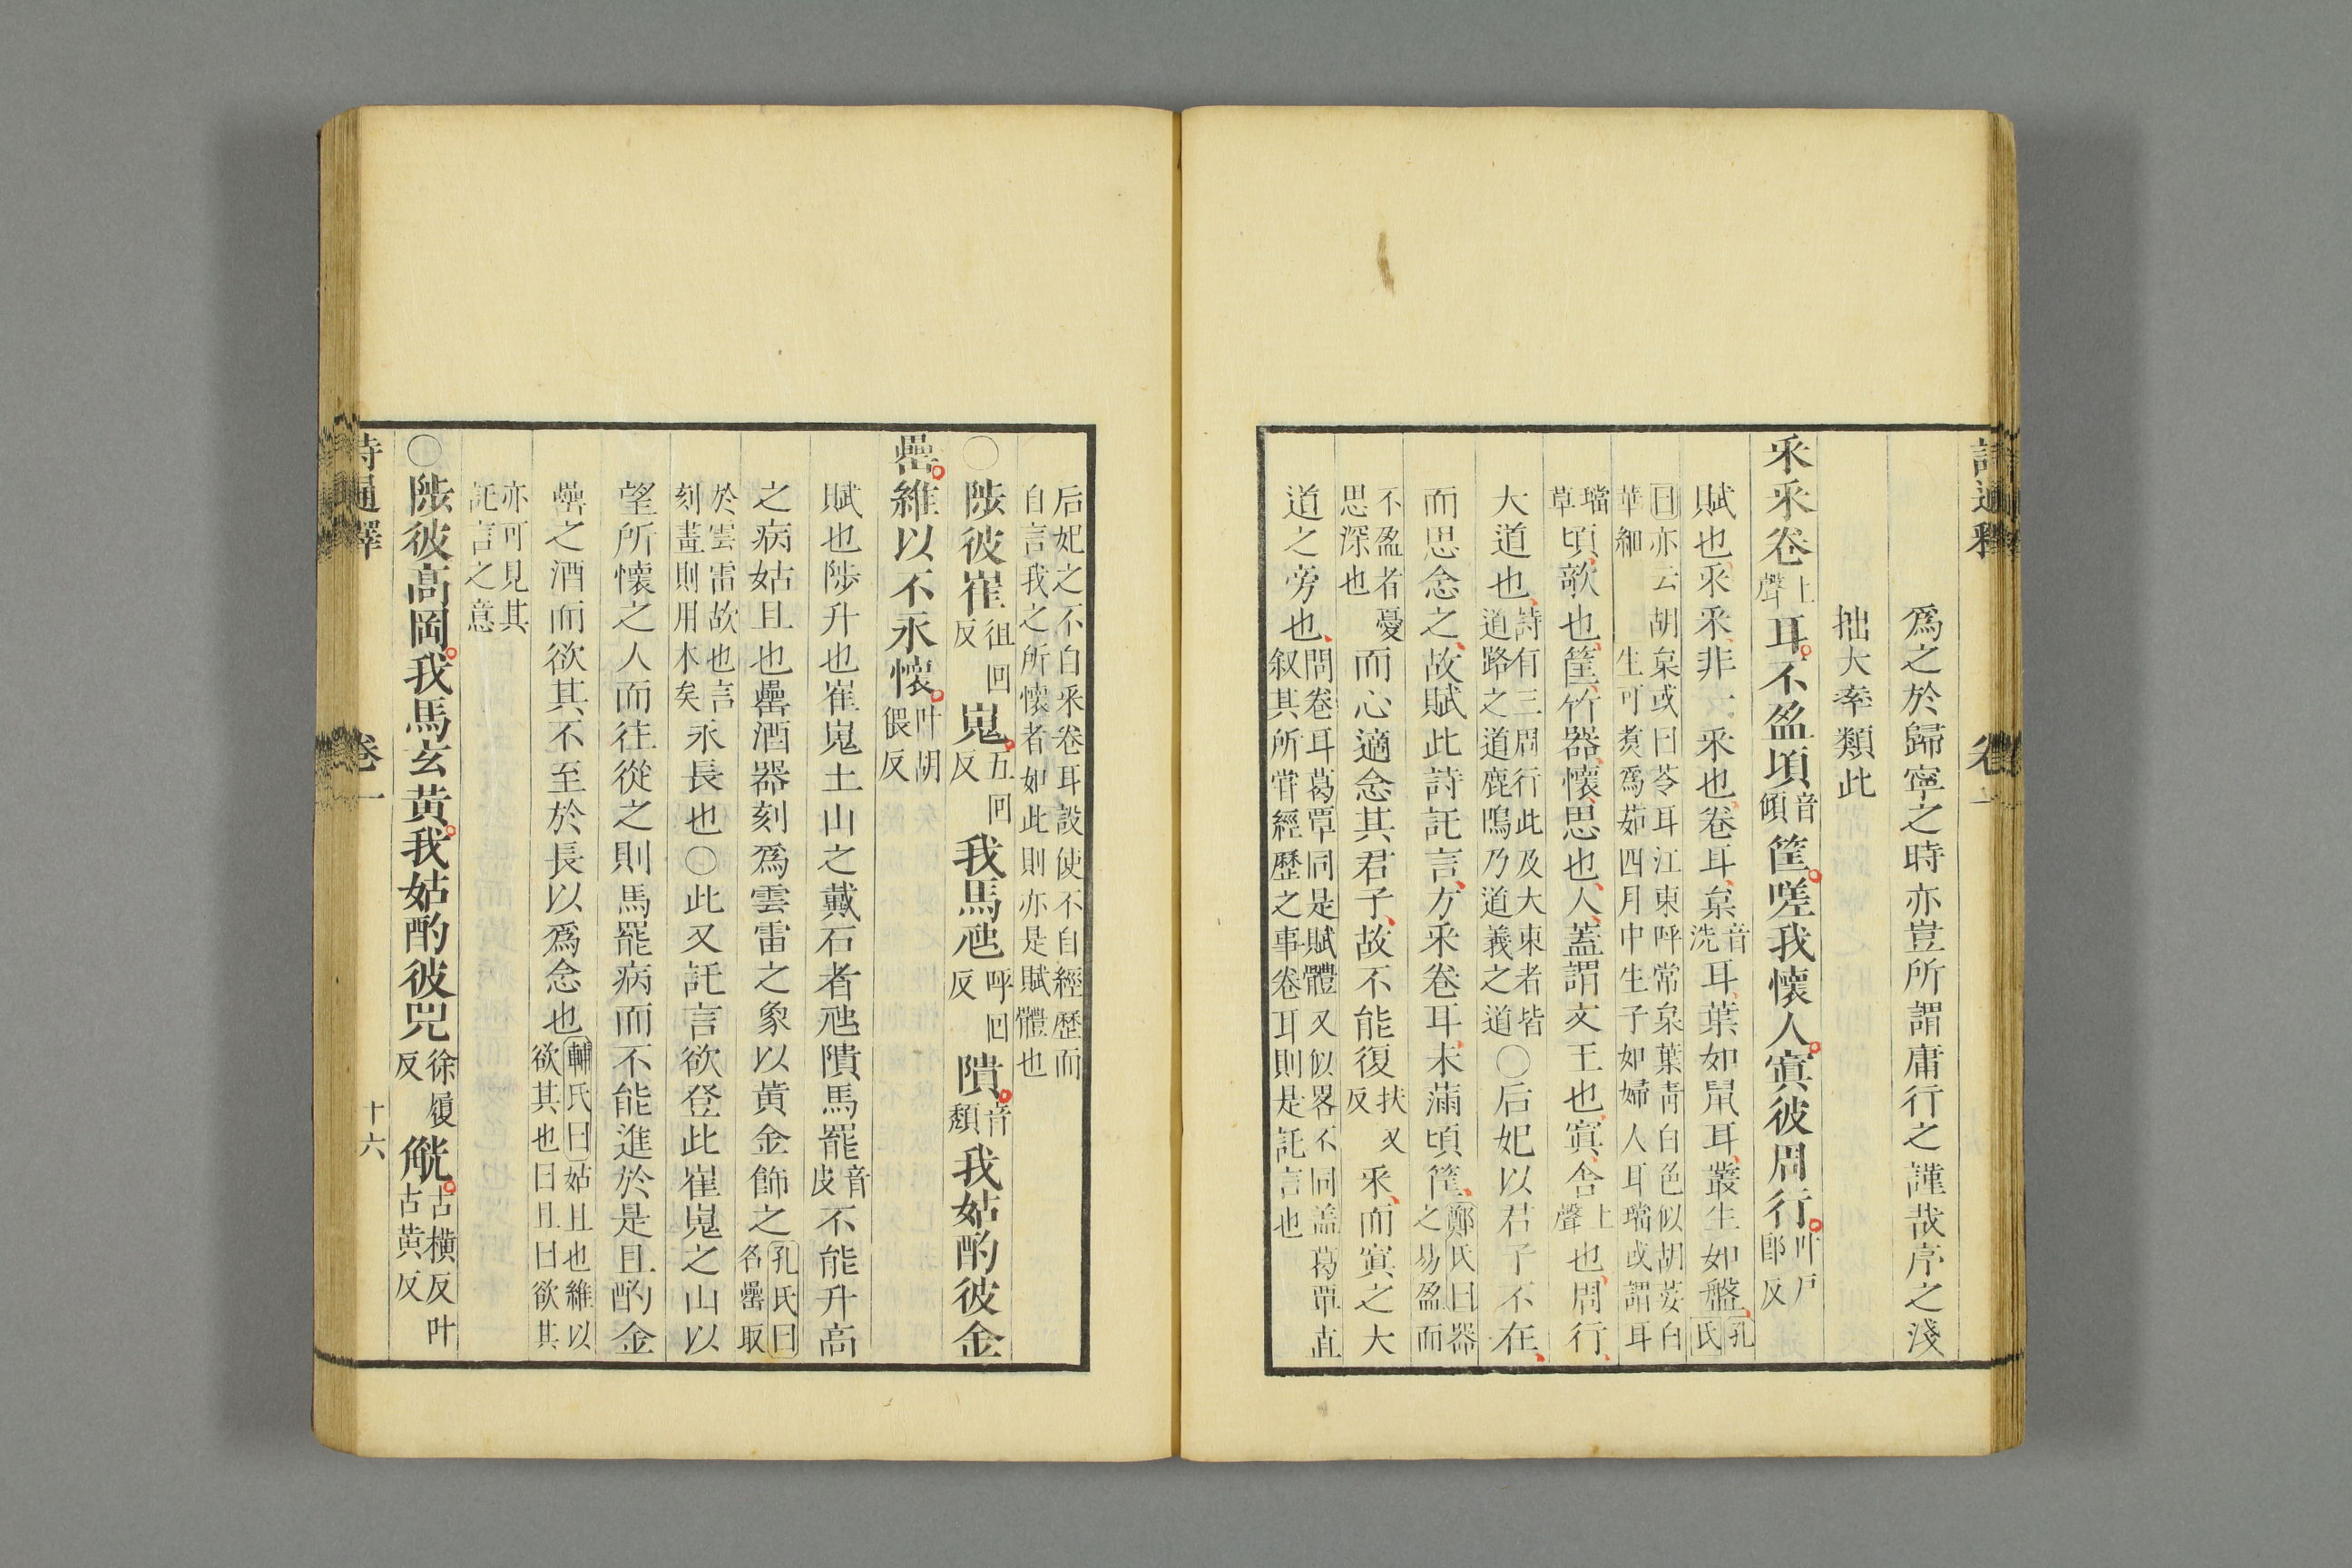 爲之於歸寧之時亦豈所謂庸行之謹哉序之淺
拙大率類此
采采卷上聲耳不盈頃音傾筐嗟我懷人寘彼周行叶戶郎反
賦也采采非一采也卷耳枲音洗耳葉如鼠耳叢生如盤孔氏
曰亦云胡枲或曰苓耳江東呼常枲葉靑白色似胡荽白
華細　生可煑爲茹四月中生子如婦人耳璫或謂耳
璫草頃欹也筐竹器懷思也人蓋謂文王也寘舍上聲也周行
大道也詩有三周行此及大東者皆道路之道鹿鳴乃道義之道〇后妃以君子不在
而思念之故賦此詩託言方采卷耳未滿頃筐鄭氏曰器之易盈而
不盈者憂思深也而心適念其君子故不能復扶又反采而寘之大
道之旁也問卷耳葛覃同是賦體又似畧不同盖葛覃直叙其所甞經歷之事卷耳則是託言也
后妃之不自采卷耳設使不自經歷而
自言我之所懷者如此則亦是賦體也
〇陟彼崔徂回反嵬五回反我馬虺呼回反隤音頹我姑酌彼金
罍維以不永懷叶胡隈反
賦也陟升也崔嵬土山之戴石者虺隤馬罷音皮不能升高
之病姑且也罍酒器刻爲雲雷之象以黄金飾之孔氏曰名罍取
於雲雷故也言刻畫則用木矣永長也〇此又託言欲登此崔嵬之山以
望所懷之人而往從之則馬罷病而不能進於是且酌金
罍之酒而欲其不至於長以爲念也輔氏曰姑且也維以欲其也曰且曰欲其
亦可見其託言之意
〇陟彼高岡我馬玄黄我姑酌彼兕徐履反觥古橫反叶古黄反
詩通釋　卷一　十六